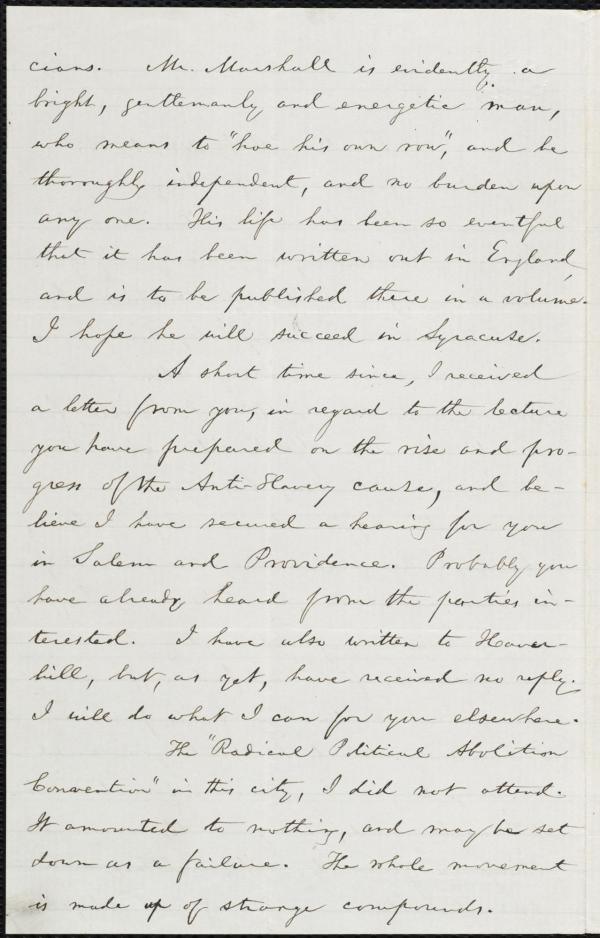 cians. Mr. Marshall is evidently a
bright, gentlemanly and energetic man,
who means to "hoe his own row", and be
thoroughly independent, and no burden upon
any one. His life has been so eventful
that it has been written out in England,
and is to be published there in a volume.
I hope he will succeed in Syracuse.
A short time since, I received
a letter from you, in regard to the lecture
you have prepared on the rise and pro-
gress of the Anti-Slavery cause, and be-
lieve I have secured a hearing for you
in Salem and Providence. Probably you
have already heard from the parties in-
terested. I have also written to Haver-
hill, but, as yet, have received no reply.
I will do what I can for you elsewhere.
The "Radical Political Abolition
Convention" in this city, I did not attend.
It amounted to nothing, and may be set
down as a failure. The whole movement
is made up of strange compounds.